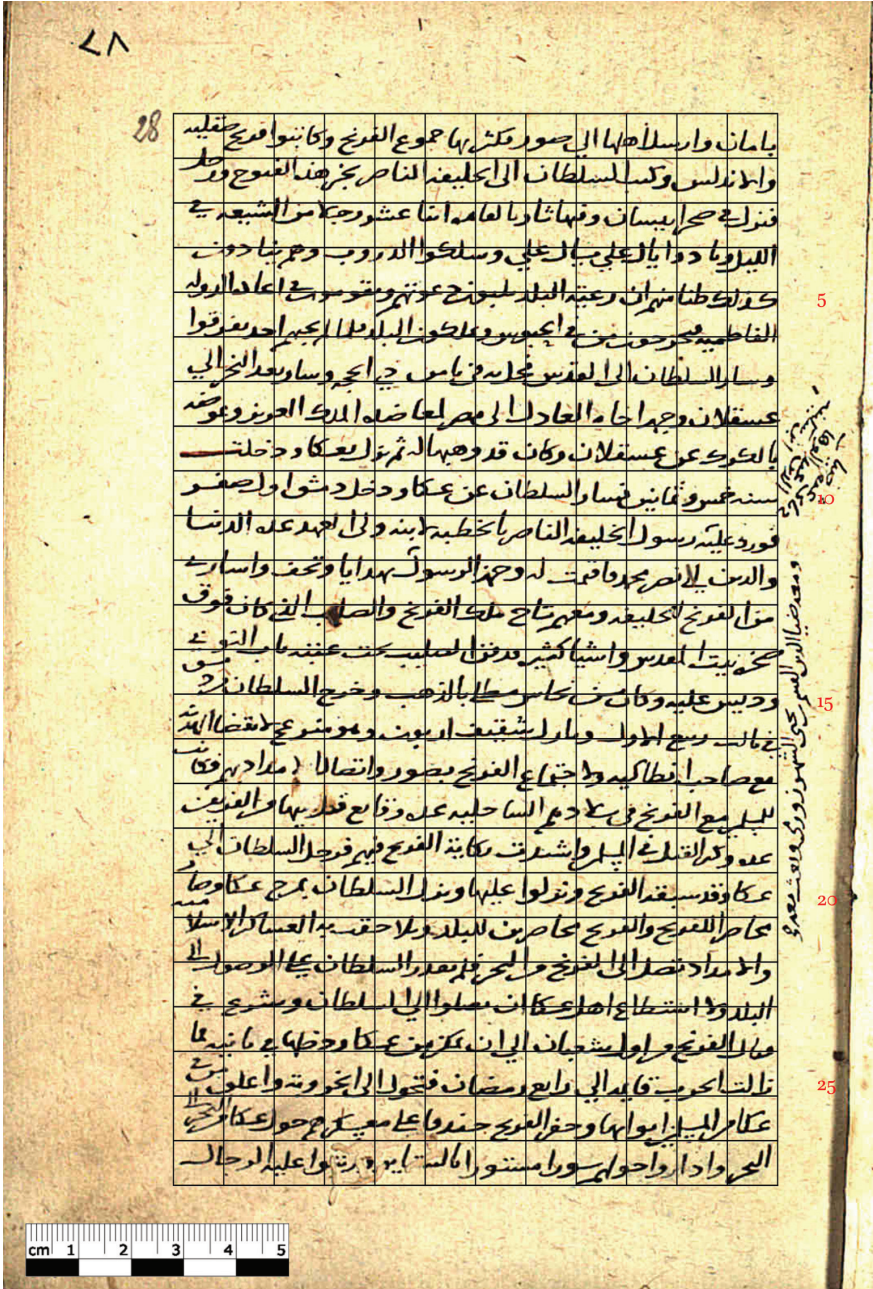 ٧٨
28
بامان وارسل أهلها الى صور فكثر بها جموع الفرنج وكاتبوا فرنج صقليه
والاندلس وكتب السلطان الى الخليفه الناصر بخبر هذه الفتوح ورحل
فنزل في صحرا بيسان وفيها ثار بالقاهره اثنا عشر رجلا من الشيعه في
الليل ونادوا يال علي يال علي وسلكوا الدروب وهم ينادون
كذلك ظنا منهم ان رعيه البلد يلبون دعوتهم ويقومون في اعاده الدوله
الفاطميه فيخرجون من في الحبوس ويملكون البلد فلما لم يجبهم احد تفرقوا
وسار السلطان الى القدس فحل به في ثامن ذي الحجه وسار بعد النحر الى
عسقلان وجهز اخاه العادل الى مصر لمعاضده الملك العزيز وعوضه
بالكرك عن عسقلان وكان قد وهبها له ثم نزل بعكا ودخلت
سنه خمس وثمانين فسار السلطان عن عكا ودخل دمشق اول صفر
فورد عليه رسول الخليفه الناصر بالخطبه لابنه ولى العهد عده الدنيا
والدين ابي نصر محمد فاقيمت له وجهز الرسول بهدايا وتحف واسارى
من الفرنج للخليفه ومعهم تاج ملك الفرنج والصليب الذي كان فوق
صخره بيت المقدس واشيا كثيره فدفن الصليب تحت عتبه باب النوبي
وديس عليه وكان من نحاس مطلي بالذهب وخرج السلطان من دمشق
في ثالث ربيع الاول ونازل شقيف ارنون وهو منزعج لانقضا الهدنه
مع صاحب انطاكيه ولاجتماع الفرنج بصور واتصال الامداد بهم فكانت
للمسلمين مع الفرنج في بلادهم الساحليه عده وقايع قتل فيها من الفريقين
عده وكثر القتل في المسلمين واشتدت نكاية الفرنج فيهم فرحل السلطان الى
عكا وقد سبقه الفرنج ونزلوا عليها ونزل السلطان بمرج عكا وصار
محاصرا للفرنج والفرنج محاصرين للبلد وتلاحقت به العساكر الاسلاميه
والامداد تصل الى الفرنج من البحر فلم يقدر السلطان على الوصول الى
البلد ولا استطاع اهل عكا ان يصلوا الى السلطان وشرع في
قتال الفرنج من اول شعبان الى ان تمكن من عكا ودخلها في ثانيه فما
زالت الحرب قايمه الى رابع رمضان فتحول الى الخروبه واغلق من في
عكا من المسلمين ابوابها وحفر الفرنج خندقا على معسكرهم حول عكا من البحر الى
البحر واداروا حولهم سورا مستورا بالستاير ورتبوا عليه الرجال
ومعه ضيا الدين القسم بن يحيى الشهرزوري وبعث معه
5
10
15
20
25
cm 1 2 3 4 5